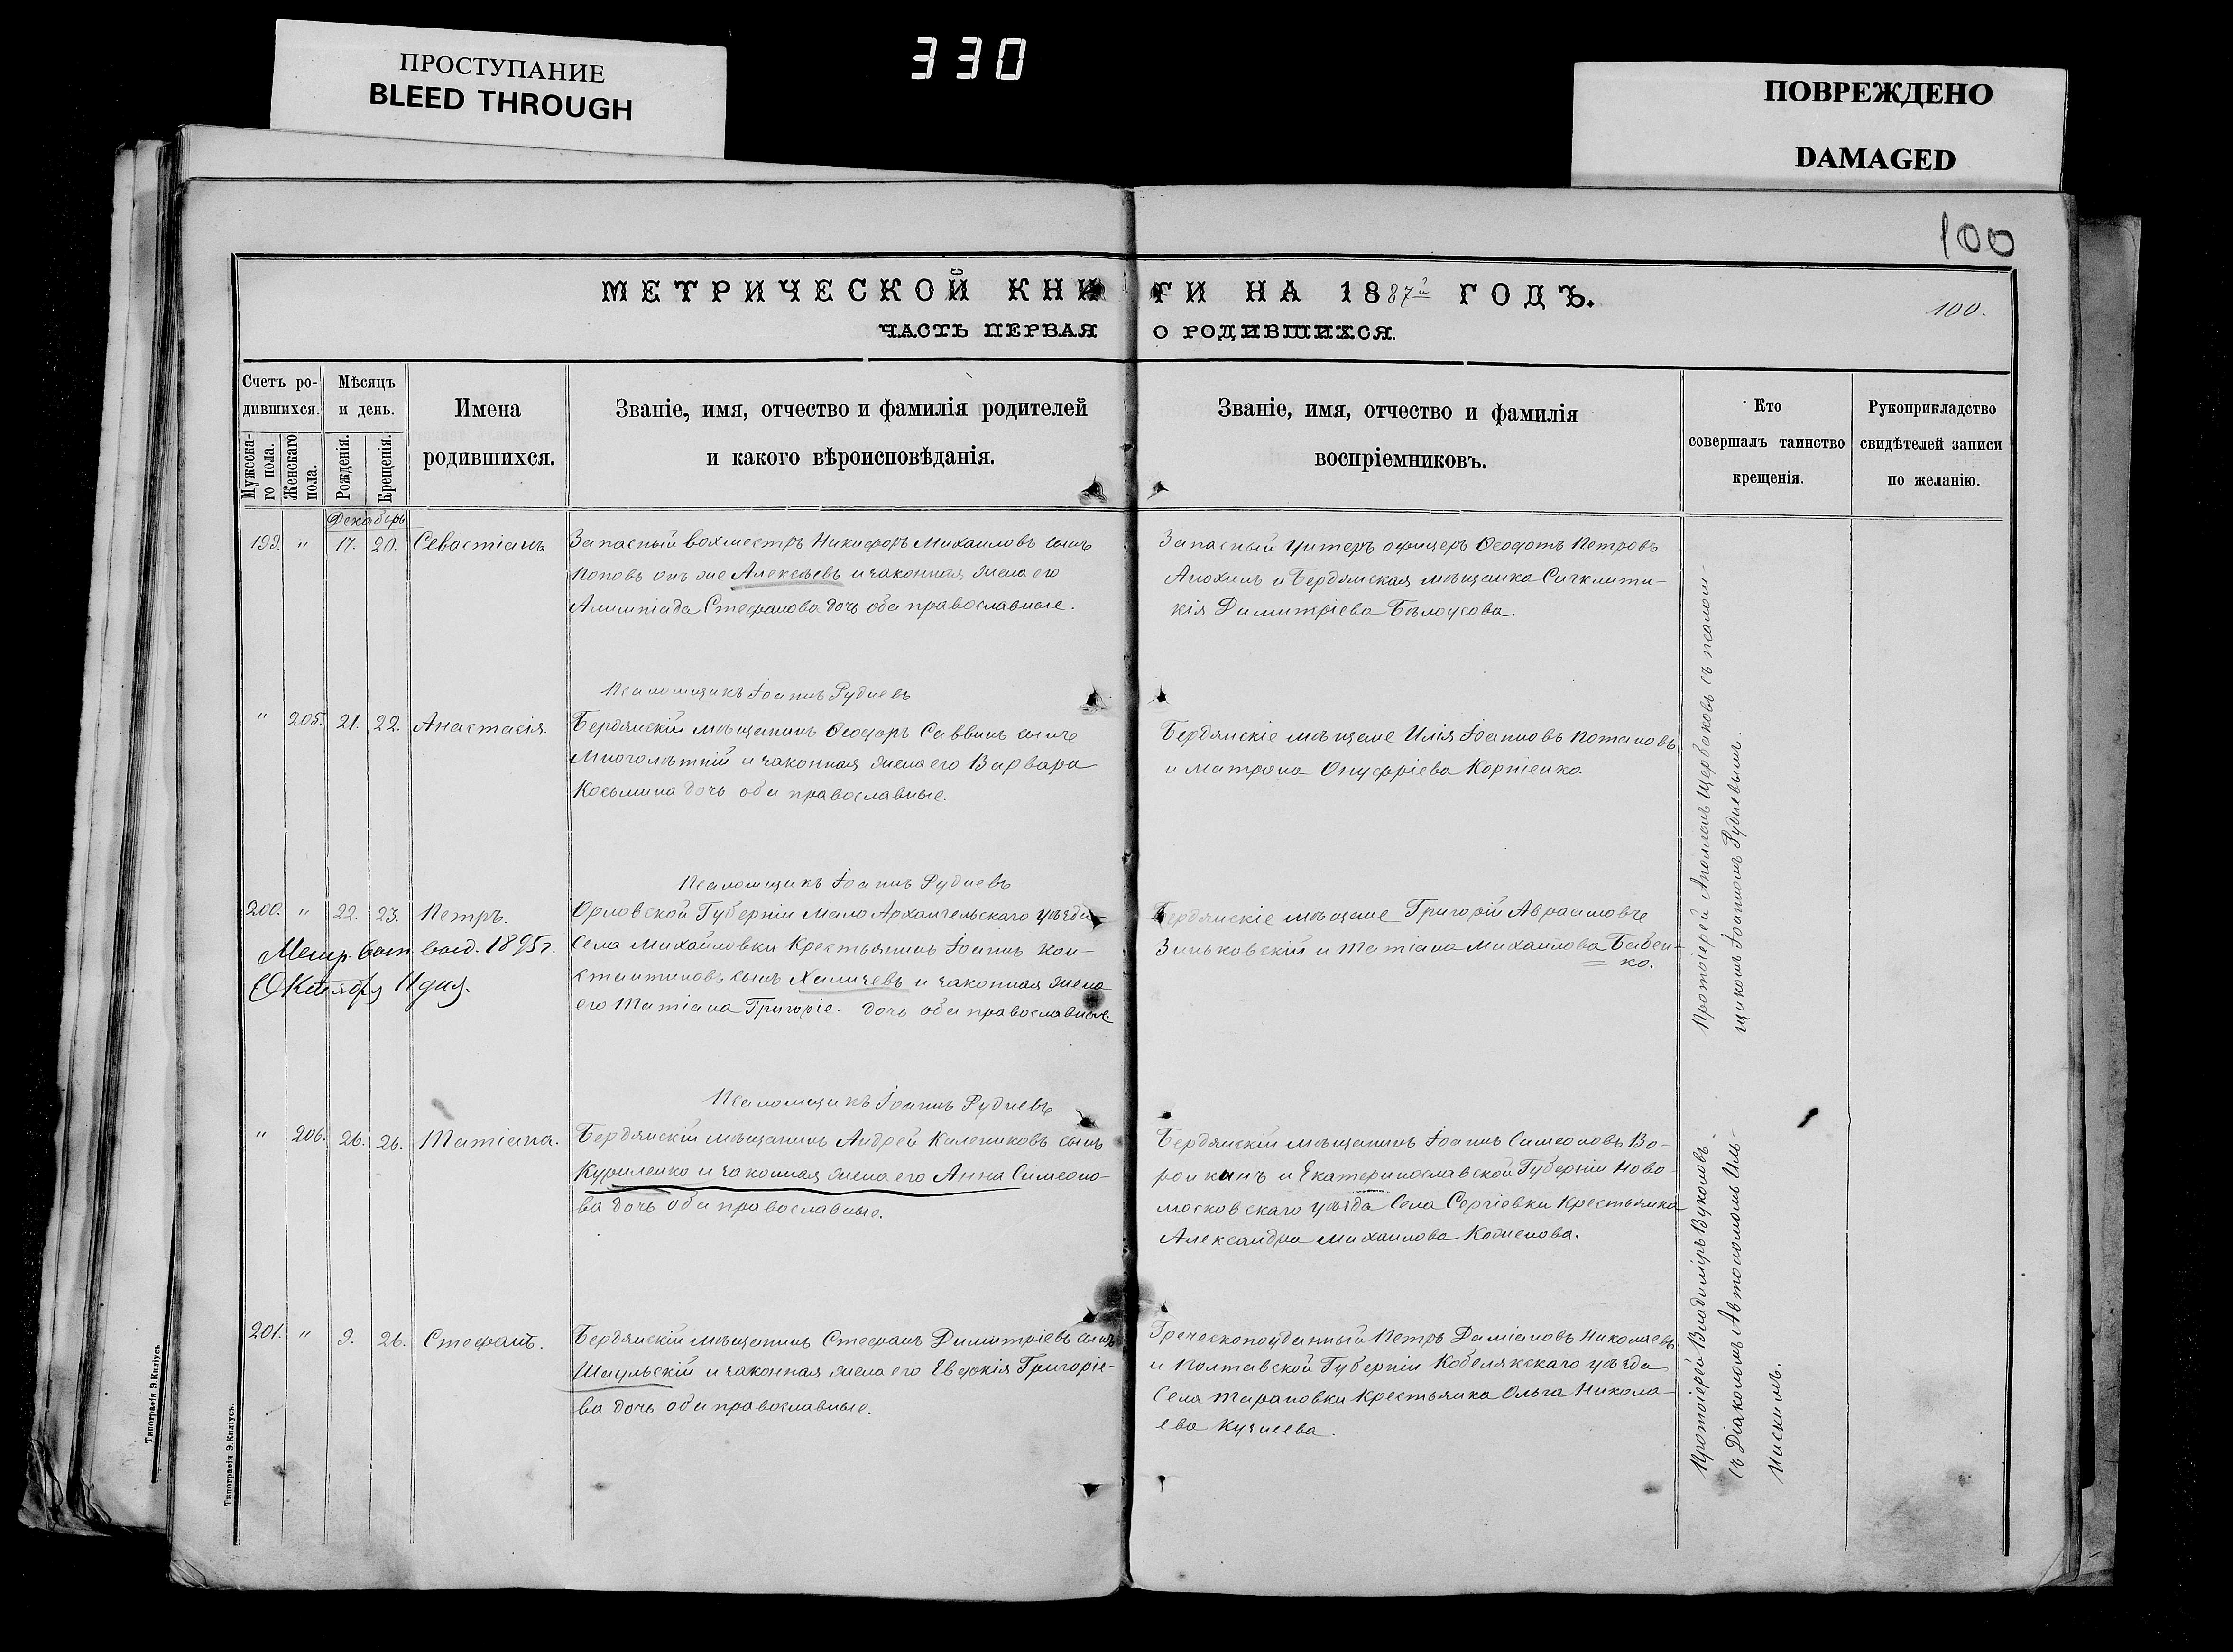 ПРОСТУПАНИЕ
BLEED THROUGH
330
ПОВРЕЖДЕНО
DAMAGED
100
МЕТРИЧЕСКОЙ КНИГИ НА 1887й ГОДЪ.
100.
ЧАСТЬ ПЕРВАЯ О РОДИВШИХСЯ.
Счетъ ро-
дившихся.
Мужеска-
го пола.
Женскаго
пола.
Мѣсяцъ
и день.
Рожденія.
Крещенія.
Имена
родившихся.
Званіе, имя, отчество и фамилія родителей
и какого вѣроисповѣданія.
Званіе, имя, отчество и фамилія
воспріемниковъ.
Кто
совершалъ таинство
крещенія.
Рукоприкладство
свидѣтелей записи
по желанію.
Декабрь
199. " 17. 20. Севастіанъ
Запасный вахмистръ Никифоръ Михаиловъ сынъ
Поповъ онъ же Алексѣевъ и законная жена его
Алимпіада Стефанова дочь оба православные.
Запасный унтеръ офицеръ Ѳеодотъ Петровъ
Анохинъ и Бердянская мѣщанка Сигклити-
кія Димитріева Бѣлоусова.
Псаломщикъ Іоаннъ Рудневъ
" 205. 21. 22. Анастасія.
Бердянскій мѣщанинъ Ѳеодоръ Саввинъ сынъ
Многолѣтній и законная жена его Варвара
Косьмина дочь оба православные.
Бердянскіе мѣщане Илія Іоанновъ Потаповъ
и Матрона Онуфріева Корніенко.
Псаломщикъ Іоаннъ Рудневъ
200. " 22. 23. Петръ.
Метр. вып. выд. 1895 г.
Октября 11 дня.
Орловской Губерніи Мало Архангельскаго уѣзда
Села Михайловки Крестьянинъ Іоаннъ Кон-
стантиновъ сынъ Халичевъ и законная жена
его Татіана Григоріе. дочь оба православные.
Бердянскіе мѣщане Григорій Аврамовъ
Зиньковскій и Татіана Михаилова Бабен-
ко.
Протоіерей Аполлонъ Щербаковъ съ псалом-
щикомъ Іоанномъ Рудневымъ.
Псаломщикъ Іоаннъ Рудневъ
" 206. 26. 26. Татіана.
Бердянскій мѣщанинъ Андрей Калениковъ сынъ
Куриленко и законная жена его Анна Симеоно-
ва дочь оба православные.
Бердянскій мѣщанинъ Іоаннъ Симеоновъ Во-
ронкинъ и Екатеринославской Губерніи Ново-
московскаго уѣзда Села Сергіевки Крестьянка
Александра Михаилова Коженова.
201. " 9. 26. Стефанъ.
Бердянскій мѣщанинъ Стефанъ Димитріевъ сынъ
Шаульскій и законная жена его Евдокія Григоріе-
ва дочь оба православные.
Греческоподданный Петръ Даміановъ Николаевъ
и Полтавской Губерніи Кобелякскаго уѣзда
Села Тарановки Крестьянка Ольга Никола-
ева Кузнева.
Протоіерей Владиміръ Вуколовъ
съ Діакономъ Автономомъ Иль-
инскимъ.
Типографія Э.Киліусъ
Типографія Э.Киліусъ.